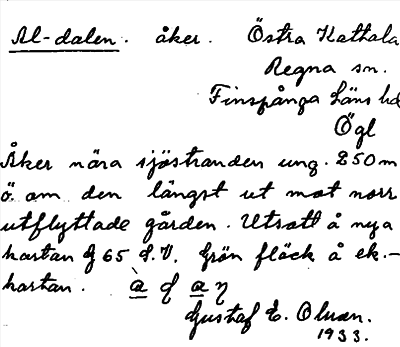 Al-dalen. åker. Östra Kattala
Regna sn.
Finspånga läns hd
Ögl
Åker nära sjöstranden ung. 250 m
ö. om den längst ut mot norr
utflyttade gården. Utsatt å nya
kartan 65 S.V. Grön fläck å ek.-
kartan. a
Gustaf E. Olsson.
1933.